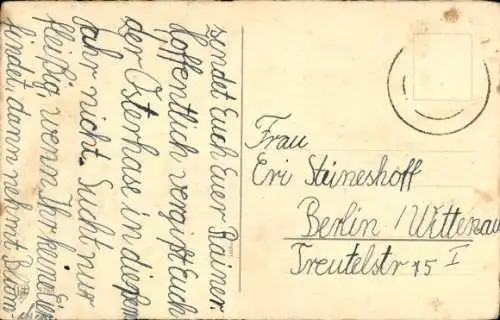 sendet Euch Euer Rainer.
Hoffentlich vergißt Euch
der Osterhase in diesem
Jahr nicht. Sucht nur
fleißig, wenn Ihr keine Eier
findet, dann nehmt
Frau
Eri Steineshoff
Berlin / Wittenau
Treutelstr 15 I